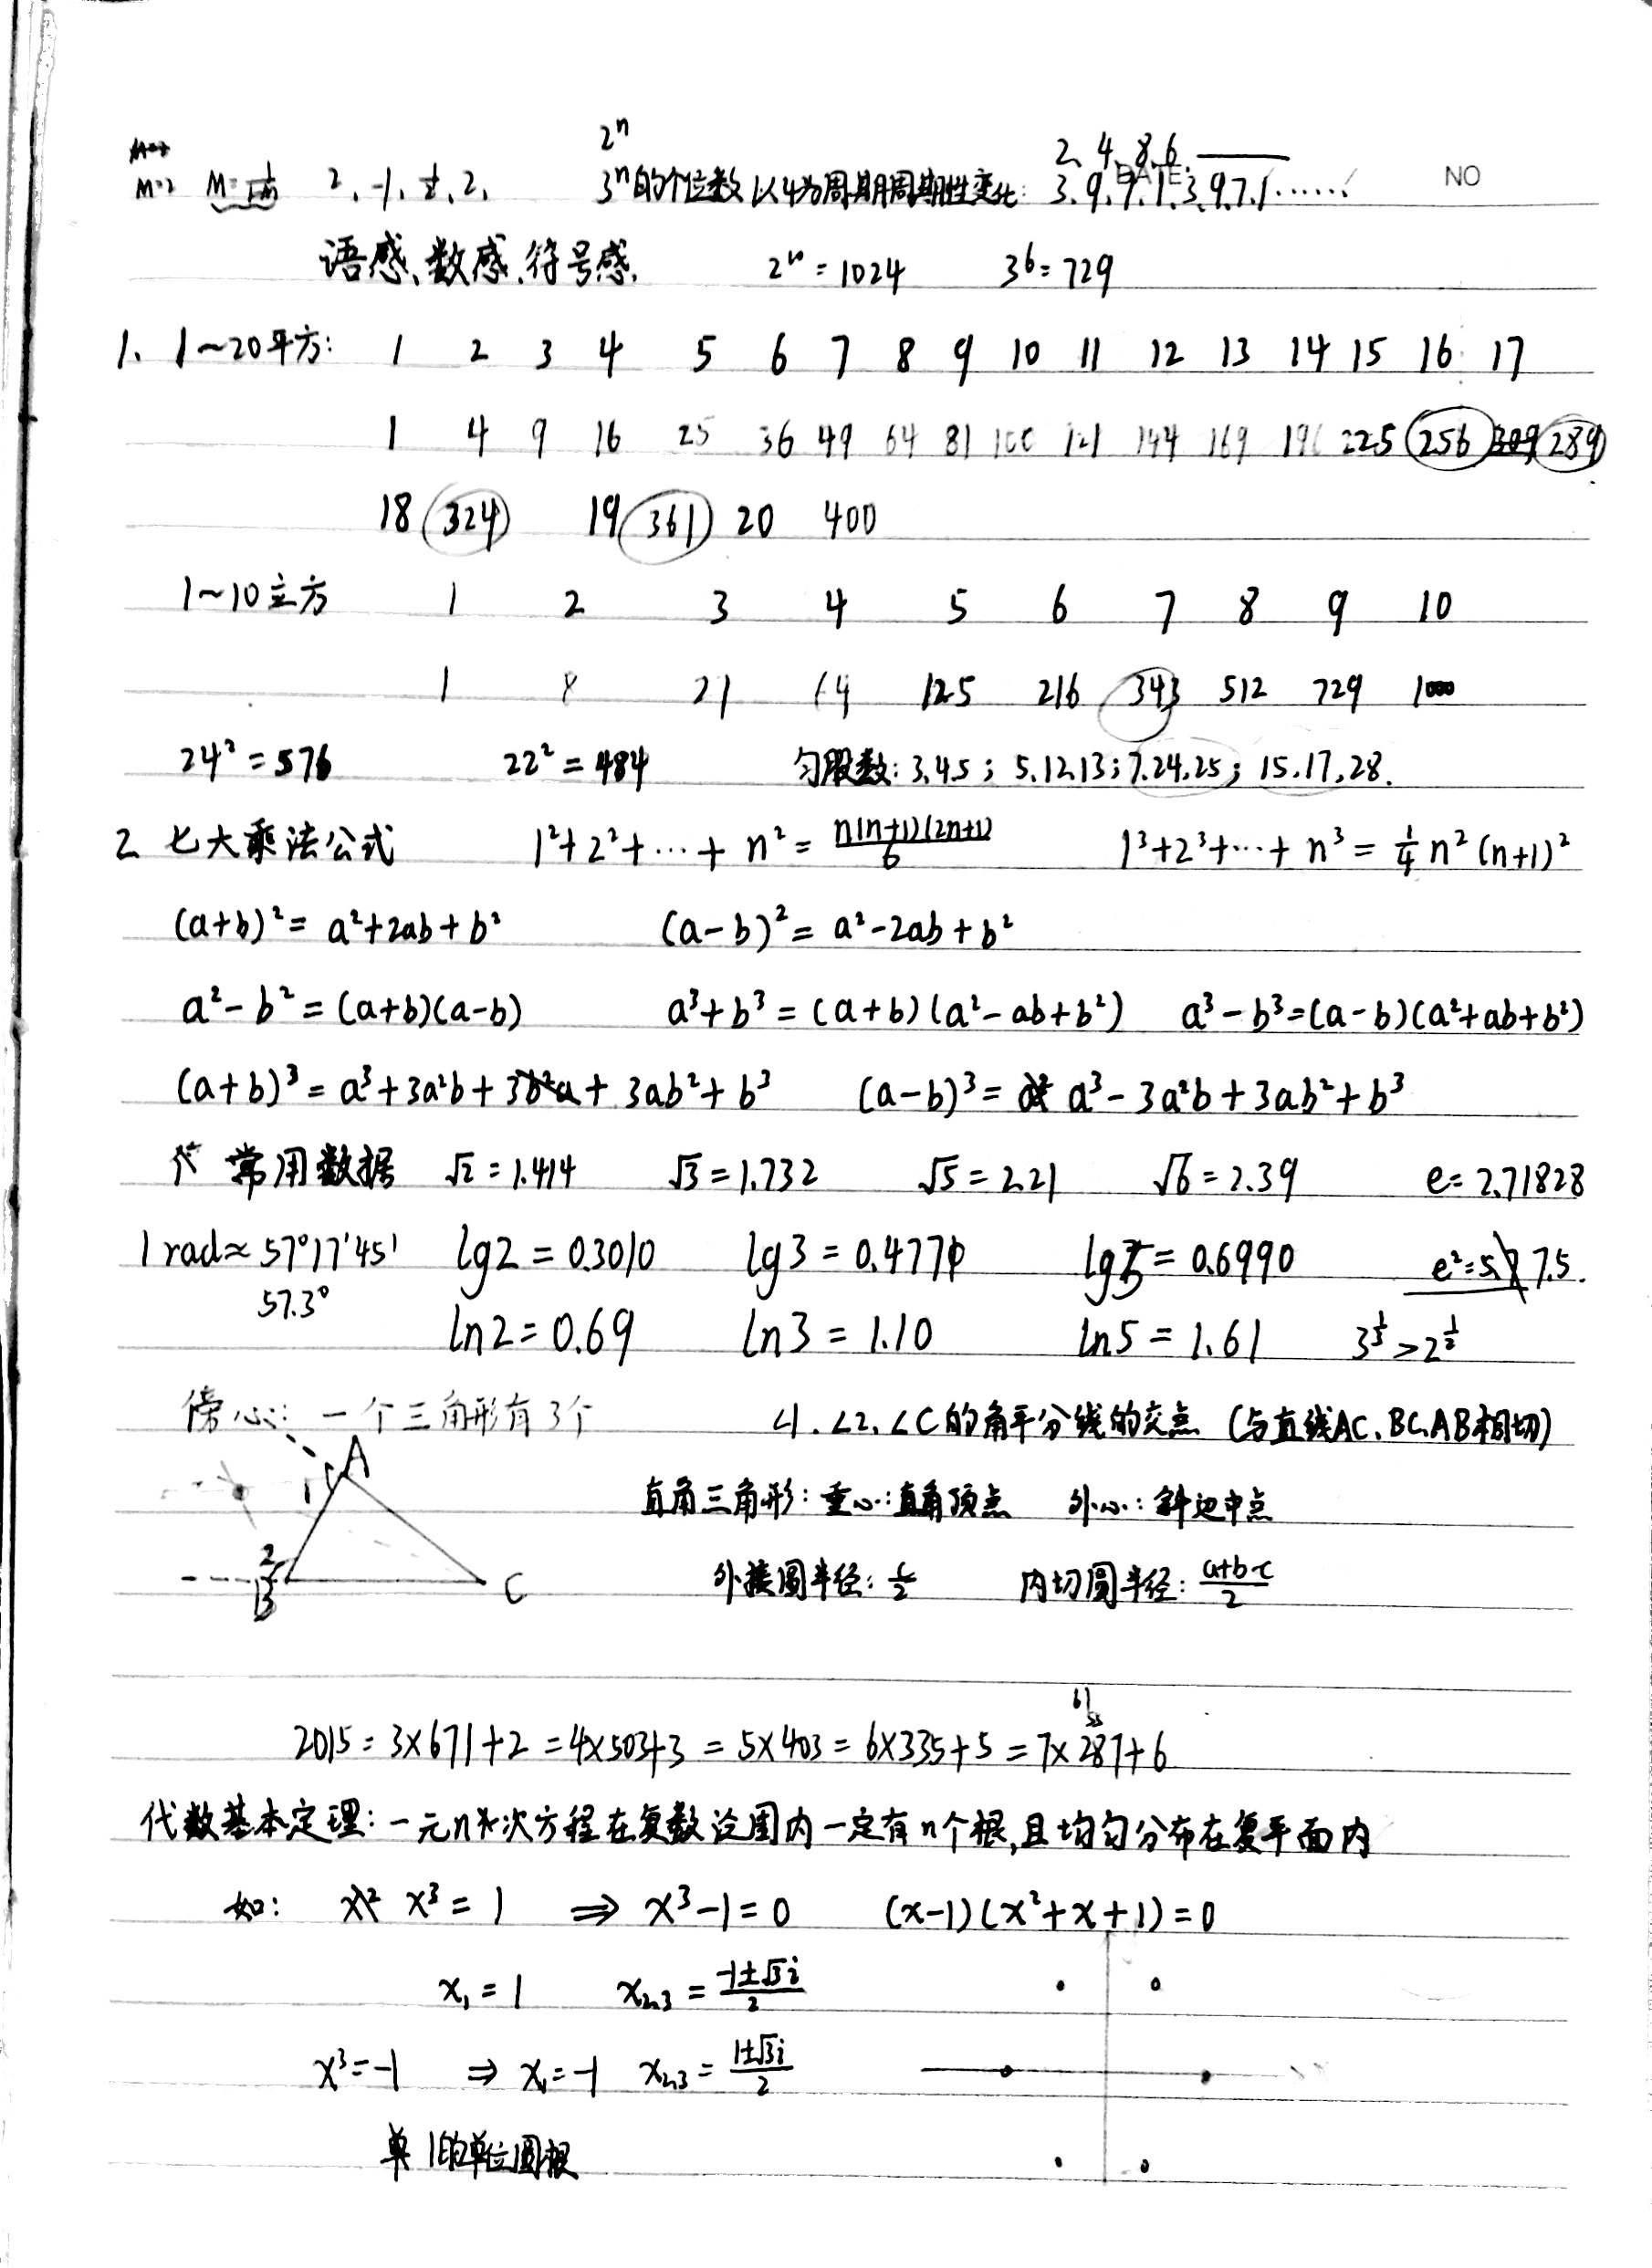 2ⁿ 2、4、8、6、
M=2 2、-1、½、2、 3ⁿ的个位数以4为周期周期性变化: 3、9、7、1、3、9、7、1…… DATE: NO
语感、数感、符号感、 2¹⁰=1024 3⁶=729
1、 1~20平方: 1 2 3 4 5 6 7 8 9 10 11 12 13 14 15 16 17
1 4 9 16 25 36 49 64 81 100 121 144 169 196 225 256 289
18 324 19 361 20 400
1~10立方 1 2 3 4 5 6 7 8 9 10
1 8 21 64 125 216 343 512 729 1000
24²=576 22²=484 勾股数: 3,4,5; 5,12,13; 7,24,25; 15,17,28.
2 七大乘法公式 1²+2²+…+n²=n(n+1)(2n+1)/6 1³+2³+…+n³=¼n²(n+1)²
(a+b)²=a²+2ab+b² (a-b)²=a²-2ab+b²
a²-b²=(a+b)(a-b) a³+b³=(a+b)(a²-ab+b²) a³-b³=(a-b)(a²+ab+b²)
(a+b)³=a³+3a²b+3ab²+b³ (a-b)³=a³-3a²b+3ab²+b³
常用数据 √2=1.414 √3=1.732 √5=2.21 √6=2.39 e=2.71828
1rad≈57°17'45' lg2=0.3010 lg3=0.4771 lg5=0.6990 e²=7.5.
57.3°
ln2=0.69 ln3=1.10 ln5=1.61 3^⅓>2^½
傍心: 一个三角形有3个 ∠1.∠2.∠C的角平分线的交点 (与直线AC、BC、AB相切)
A
1
直角三角形: 垂心: 直角顶点 外心: 斜边中点
2
B C 外接圆半径: c/2 内切圆半径: (a+b-c)/2
2015=3×671+2=4×503+3=5×403=6×335+5=7×287+6
代数基本定理: 一元n次方程在复数范围内一定有n个根,且均匀分布在复平面内
如: x³=1 ⇒ x³-1=0 (x-1)(x²+x+1)=0
x₁=1 x₂,₃=(-1±√3i)/2
x³=-1 ⇒ x₁=-1 x₂,₃=(1±√3i)/2
1的单位圆根